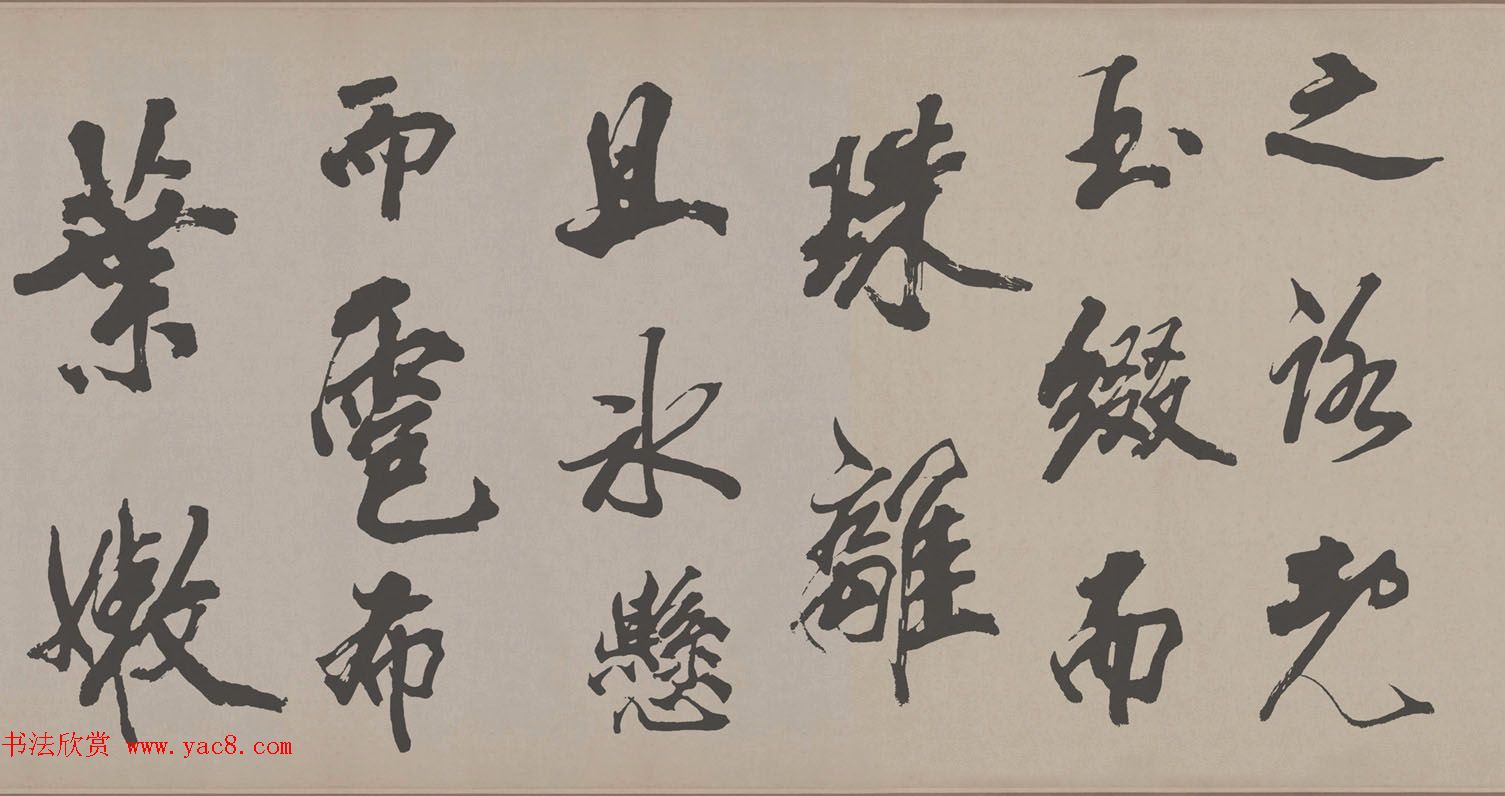 之路既
玉綴而
珠離
且氷懸
而雹布
葉嫩
书法欣赏 www.yac8.com